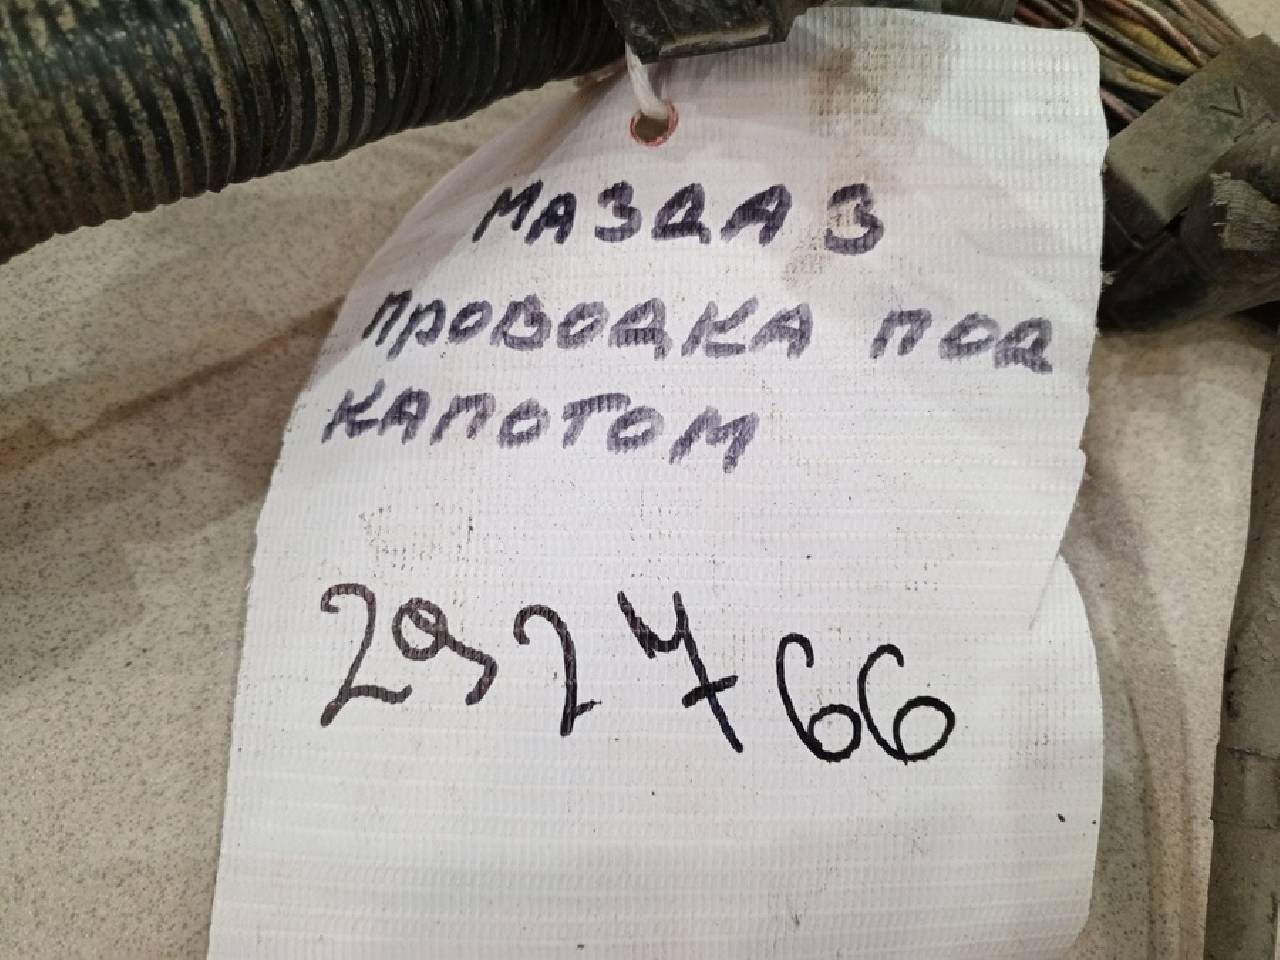 МАЗДА 3
ПРОВОДКА ПОД
КАПОТОМ
292766